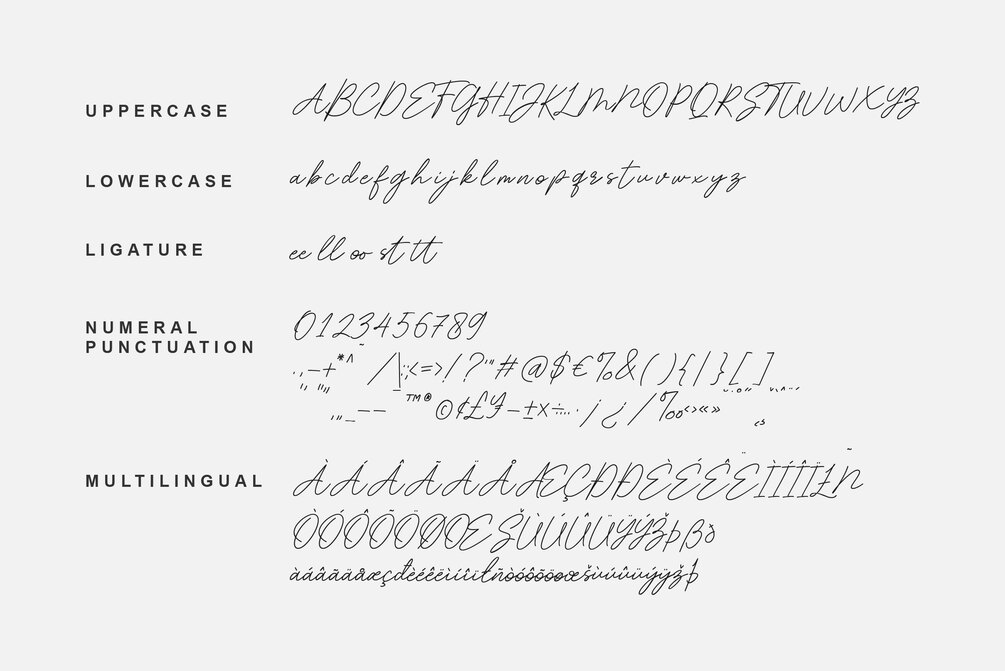 UPPERCASE ABCDEFGHIJKLMNOPQRSTUVWXYZ
LOWERCASE abcdefghijklmnopqrstuvwxyz
LIGATURE ee ll oo st tt
NUMERAL 0123456789
PUNCTUATION .,-+*^~/\|:;<=>!?'"#@$€%&(){|}[]
‚„_–—™®©¢£¥−±×÷…·¡¿⁄‰‹›«»
MULTILINGUAL ÀÁÂÃÄÅÆÇĐÐÈÉÊËÌÍÎÏŁÑ
ÒÓÔÕÖØŒŠÙÚÛÜŸÝŽÞßð
àáâãäåæçđèéêëìíîïłñòóôõöøœšùúûüýÿžþ